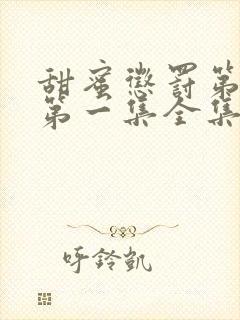 甜蜜懲罰第
第一集全集
呼鈴凱